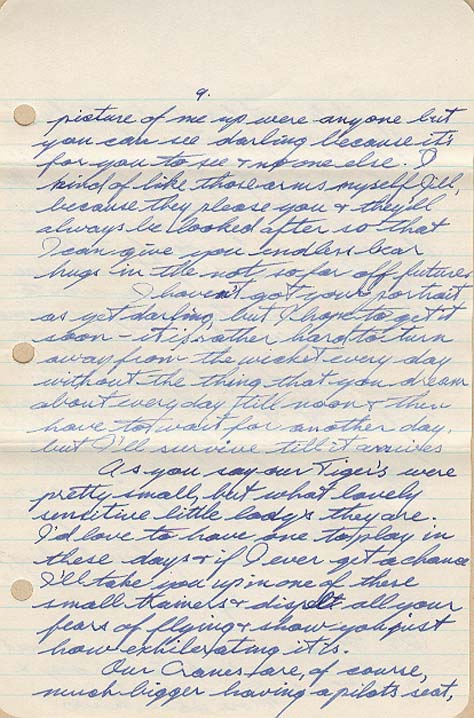 9.
picture of me up were anyone but
you can see darling because it's
for you to see & no one else. I
kind of like those arms myself Jill,
because they please you & they'll
always be looked after so that
I can give you endless bear
hugs in the not so far off future.
I haven't got your portrait
as yet darling but I hope to get it
soon - it is rather hard to turn
away from the wicket every day
without the thing that you dream
about every day till noon & then
have to wait for another day.
but I'll survive till it arrives
As you say our Tiger's were
pretty small, but what lovely
sensitive little lady's they are.
I'd love to have one to play in
these days & if I ever get a chance
I'll take you up in one of these
small trainers & dispelt all your
fears of flying & show you just
how exhilerating it is.
Our Cranes are, of course,
much bigger having a pilots seat,